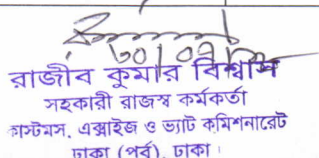 রাজীব কুমার বিশ্বাস
সহকারী রাজস্ব কর্মকর্তা
কাস্টমস, এক্সাইজ ও ভ্যাট কমিশনারেট
ঢাকা (পূর্ব), ঢাকা।